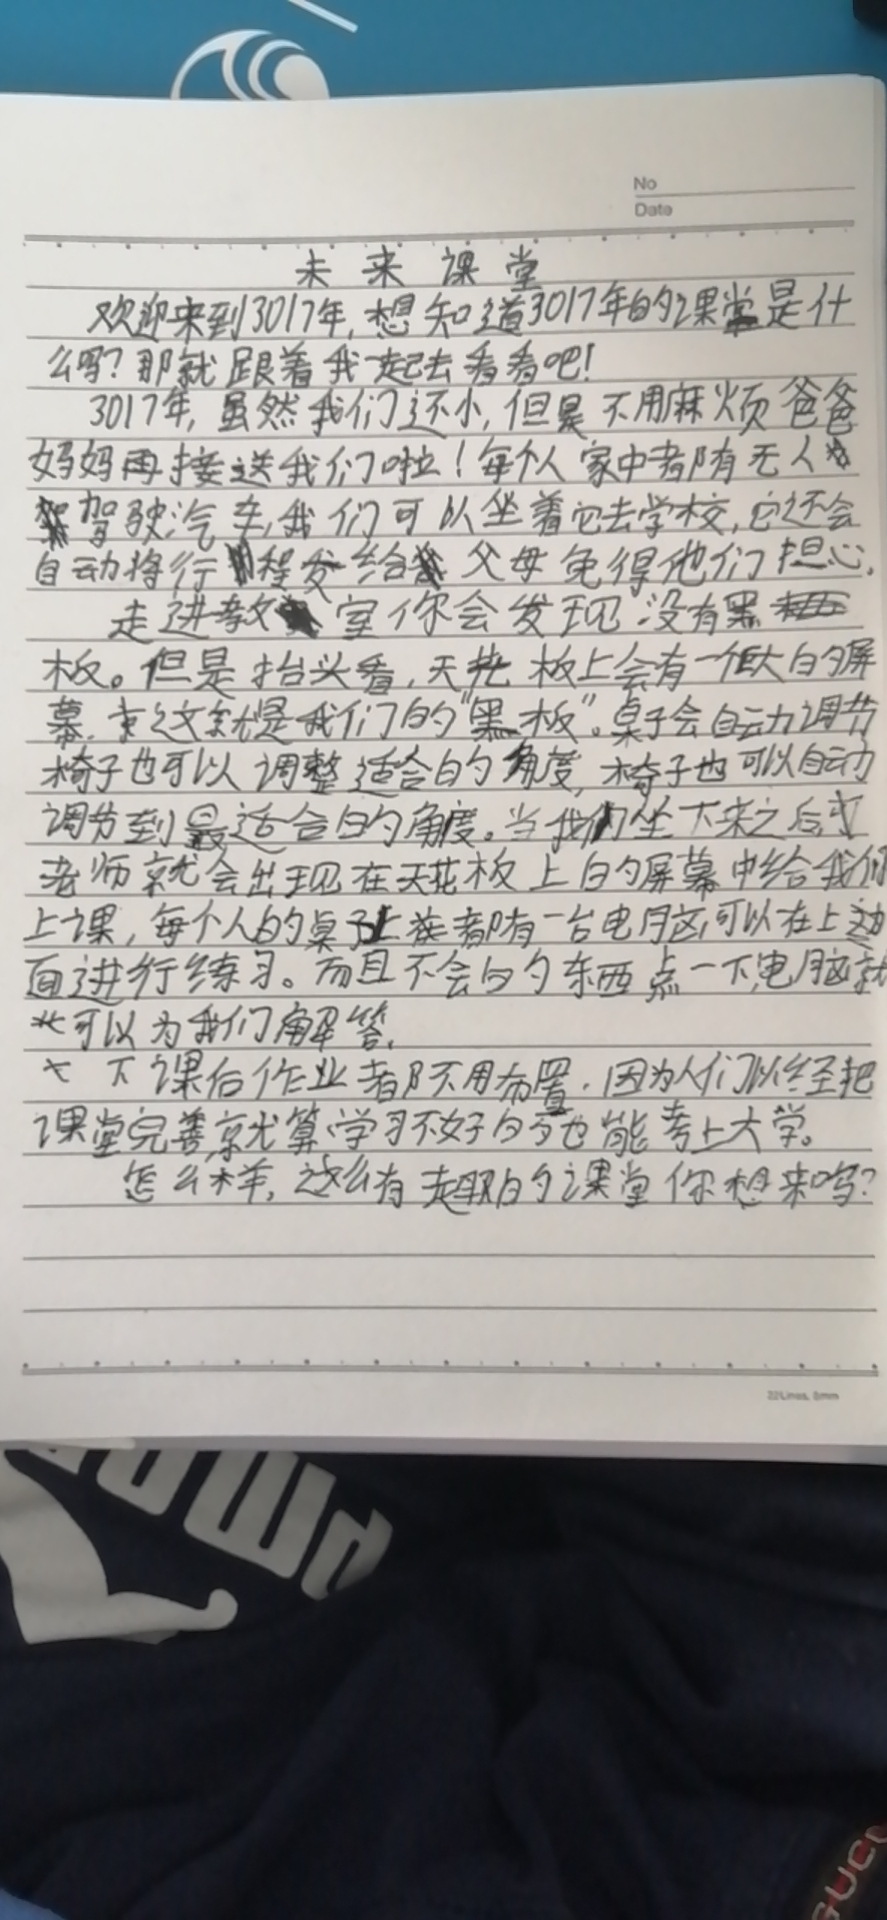 No
Date
未来课堂
欢迎来到3017年,想知道3017年的课堂是什
么吗?那就跟着我一起去看看吧!
3017年,虽然我们还小,但是不用麻烦爸爸
妈妈再接送我们啦!每个人家中都有无人
驾驶汽车,我们可以坐着它去学校,它还会
自动将行程发给父母免得他们担心。
走进教室你会发现没有黑
板。但是抬头看,天花板上会有一个很大的屏
幕,这就是我们的“黑板”。桌子会自动调节
椅子也可以调整适合的角度,椅子也可以自动
调节到最适合的角度。当我们坐下来之后,
老师就会出现在天花板上的屏幕中给我们
上课,每个人的桌子上都有一台电脑,可以在上边
面进行练习。而且不会的东西点一下,电脑就
可以为我们解答。
下课后作业都不用布置.因为人们以经把
课堂完善,就算学习不好的也能考上大学。
怎么样,这么有趣的课堂你想来吗?
22Lines, 8mm
PUMA
GUCCI